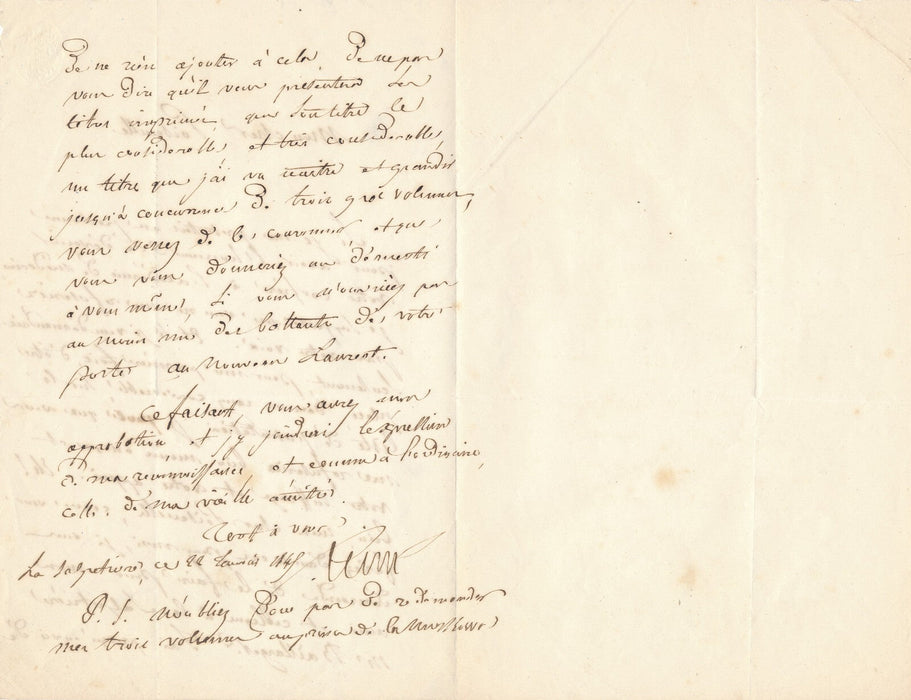 De ne rien ajouter à cela, De ne pas
vous Dire qu'il vous présentera ses
titres imprimés, que son titre le
plus considérable, et très considérable,
un titre que j'ai vu naitre et grandir
jusqu'à concurrence De trois gros volumes,
vous venez De les couronner et que
vous vous donneriez un démenti
à vous même, si vous n'ouvriez pas
au moins un Des battants De votre
porte au nouveau Laurent.
Ce faisant, vous aurez mon
approbation et j'y joindrai l'expression
De ma reconnoissance et comme à l'ordinaire,
celle De ma vieille amitié.
Tout à vous
La Salpetrière ce 22 1845
P. S. N'oubliez Donc pas De redemander
mes trois volumes auprès De la